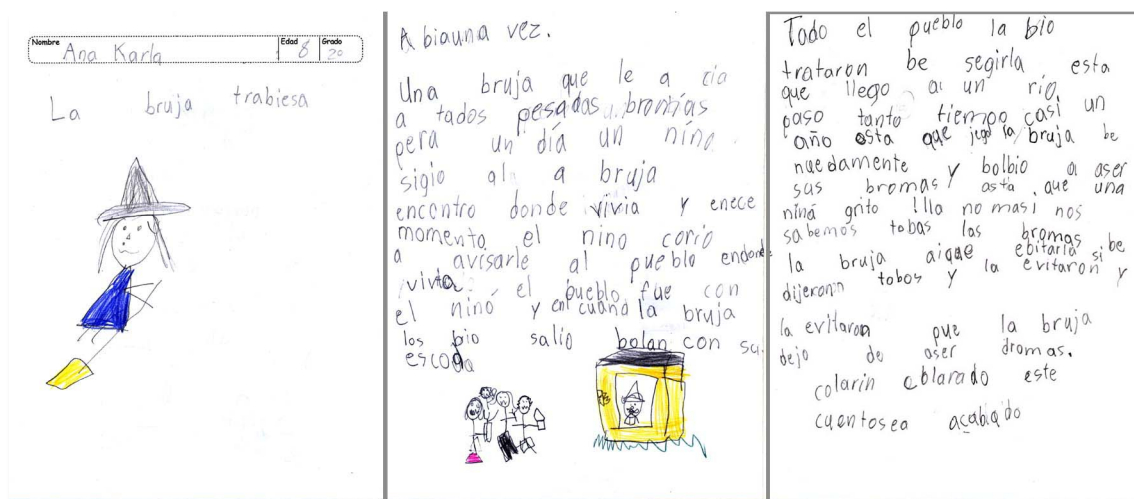 Nombre Ana Karla Edad 8 Grado 2o
La bruja trabiesa
A biauna vez.
Una bruja que le a cia
a tados pesadas bromias
pera un día un nino
sigio al a bruja
encontro donde vivia y enece
momento el nino corio
a avisarle al pueblo endonde
vivia el pueblo fue con
el nino y en cuana la bruja
los bio salio bolan con su
escoda
Todo el pueblo la bio
trataron be segirla esta
que llego a un río
paso tanto tiempo casi un
año esta que jego la bruja be
nuedamente y bolbio a aser
sus bromas asta que una
niña grito !lla no mas! nos
sabemos tobas las bromas be
la bruja aique ebitarla si
dijeron tobos y la evitaron y
la evitaron que la bruja
dejo de aser dromas.
colarin colarado este
cuentosea acabado